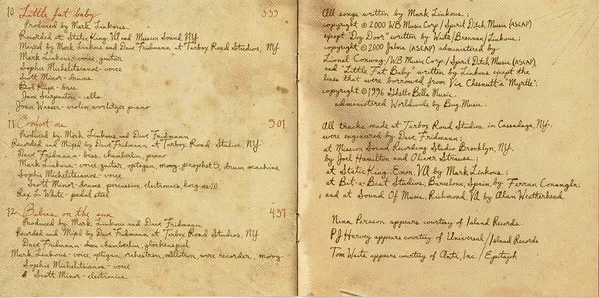 10. Little fat baby 333
Produced by Mark Linkous
Recorded at Static King VA and Mission Sound NY
Mixed by Mark Linkous and Dave Fridmann at Tarbox Road Studios, NY
Mark Linkous - voice, guitar
Sophie Michelitsianos - voice
Scott Minor - drums
Bob Rupe - bass
Jane Scarpantoni - cello
Joan Wasser - violin, wurlitzer, piano
11. Comfort me 501
Produced by Mark Linkous and Dave Fridmann
Recorded and Mixed by Dave Fridmann at Tarbox Road Studios, NY
Dave Fridmann - bass, chamberlin, piano
Mark Linkous - voice, guitar, optigan, moog, prophet 5, drum machine
Sophie Michelitsianos - voice
Scott Minor - drums, percussion, electronics, korg
Rey L White - pedal steel
12. Babies on the sun 437
Produced by Mark Linkous and Dave Fridmann
Recorded and Mixed by Dave Fridmann at Tarbox Road Studios, NY
Dave Fridmann - chamberlin, glockenspiel
Mark Linkous - voice, optigan, orchestron, mellotron, wire recorder, moog
Sophie Michelitsianos - voice
& Scott Minor - electronics
All songs written by Mark Linkous;
copyright © 2000 WB Music Corp / Spirit Ditch Music (ASCAP)
except "Dog Door" written by Waits/Brennan/Linkous;
copyright © 2000 Jalma (ASCAP) administered by
Lionel Conway / WB Music Corp / Spirit Ditch Music (ASCAP),
and "Little Fat Baby" written by Linkous except the
lines that were borrowed from Vic Chesnutt's "Myrtle";
copyright © 1996 Ghetto Bells Music
administered Worldwide by Bug Music.
All tracks made at Tarbox Road Studios in Cassadaga, NY
were engineered by Dave Fridmann;
at Mission Sound Recording Studio Brooklyn, NY.
by Joel Hamilton and Oliver Strauss;
at Static King, Enon, VA by Mark Linkous;
at Bet-a-Beat Studios, Barcelona, Spain, by Ferran Conangla;
and at Sound Of Music, Richmond, VA by Alan Weatherhead.
Nina Persson appears courtesy of Island Records.
PJ Harvey appears courtesy of Universal / Island Records
Tom Waits appears courtesy of Anti, Inc / Epitaph